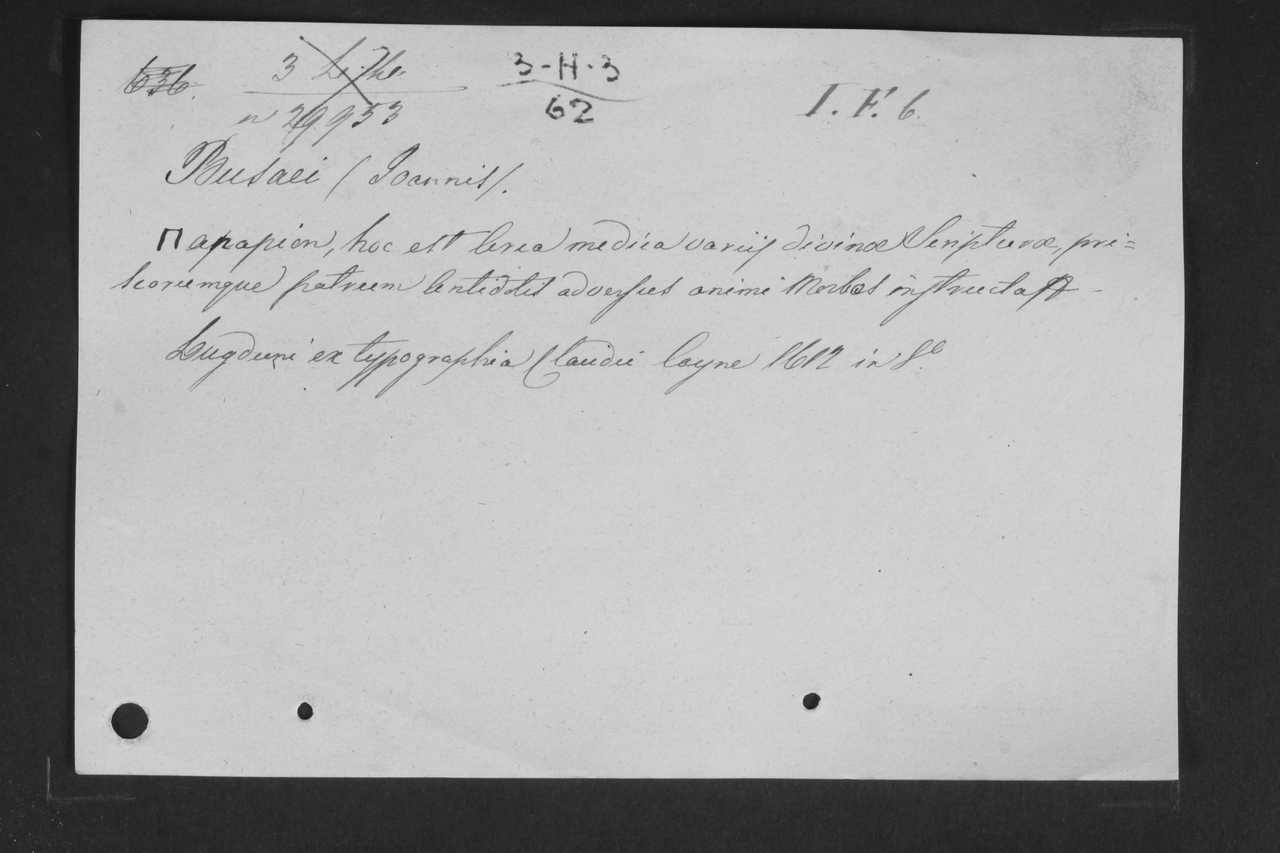 636. 3 3-H-3 I. F. 6.
nº 29953 62
Busaei (Joannis).
Παραριον, hoc est Arca medica variis divinæ Scripturæ, pri=
scorumque patrum Antidotis adversus animi Morbos instructa
Lugduni ex typographia Claudii Cayne 1612 in 8º